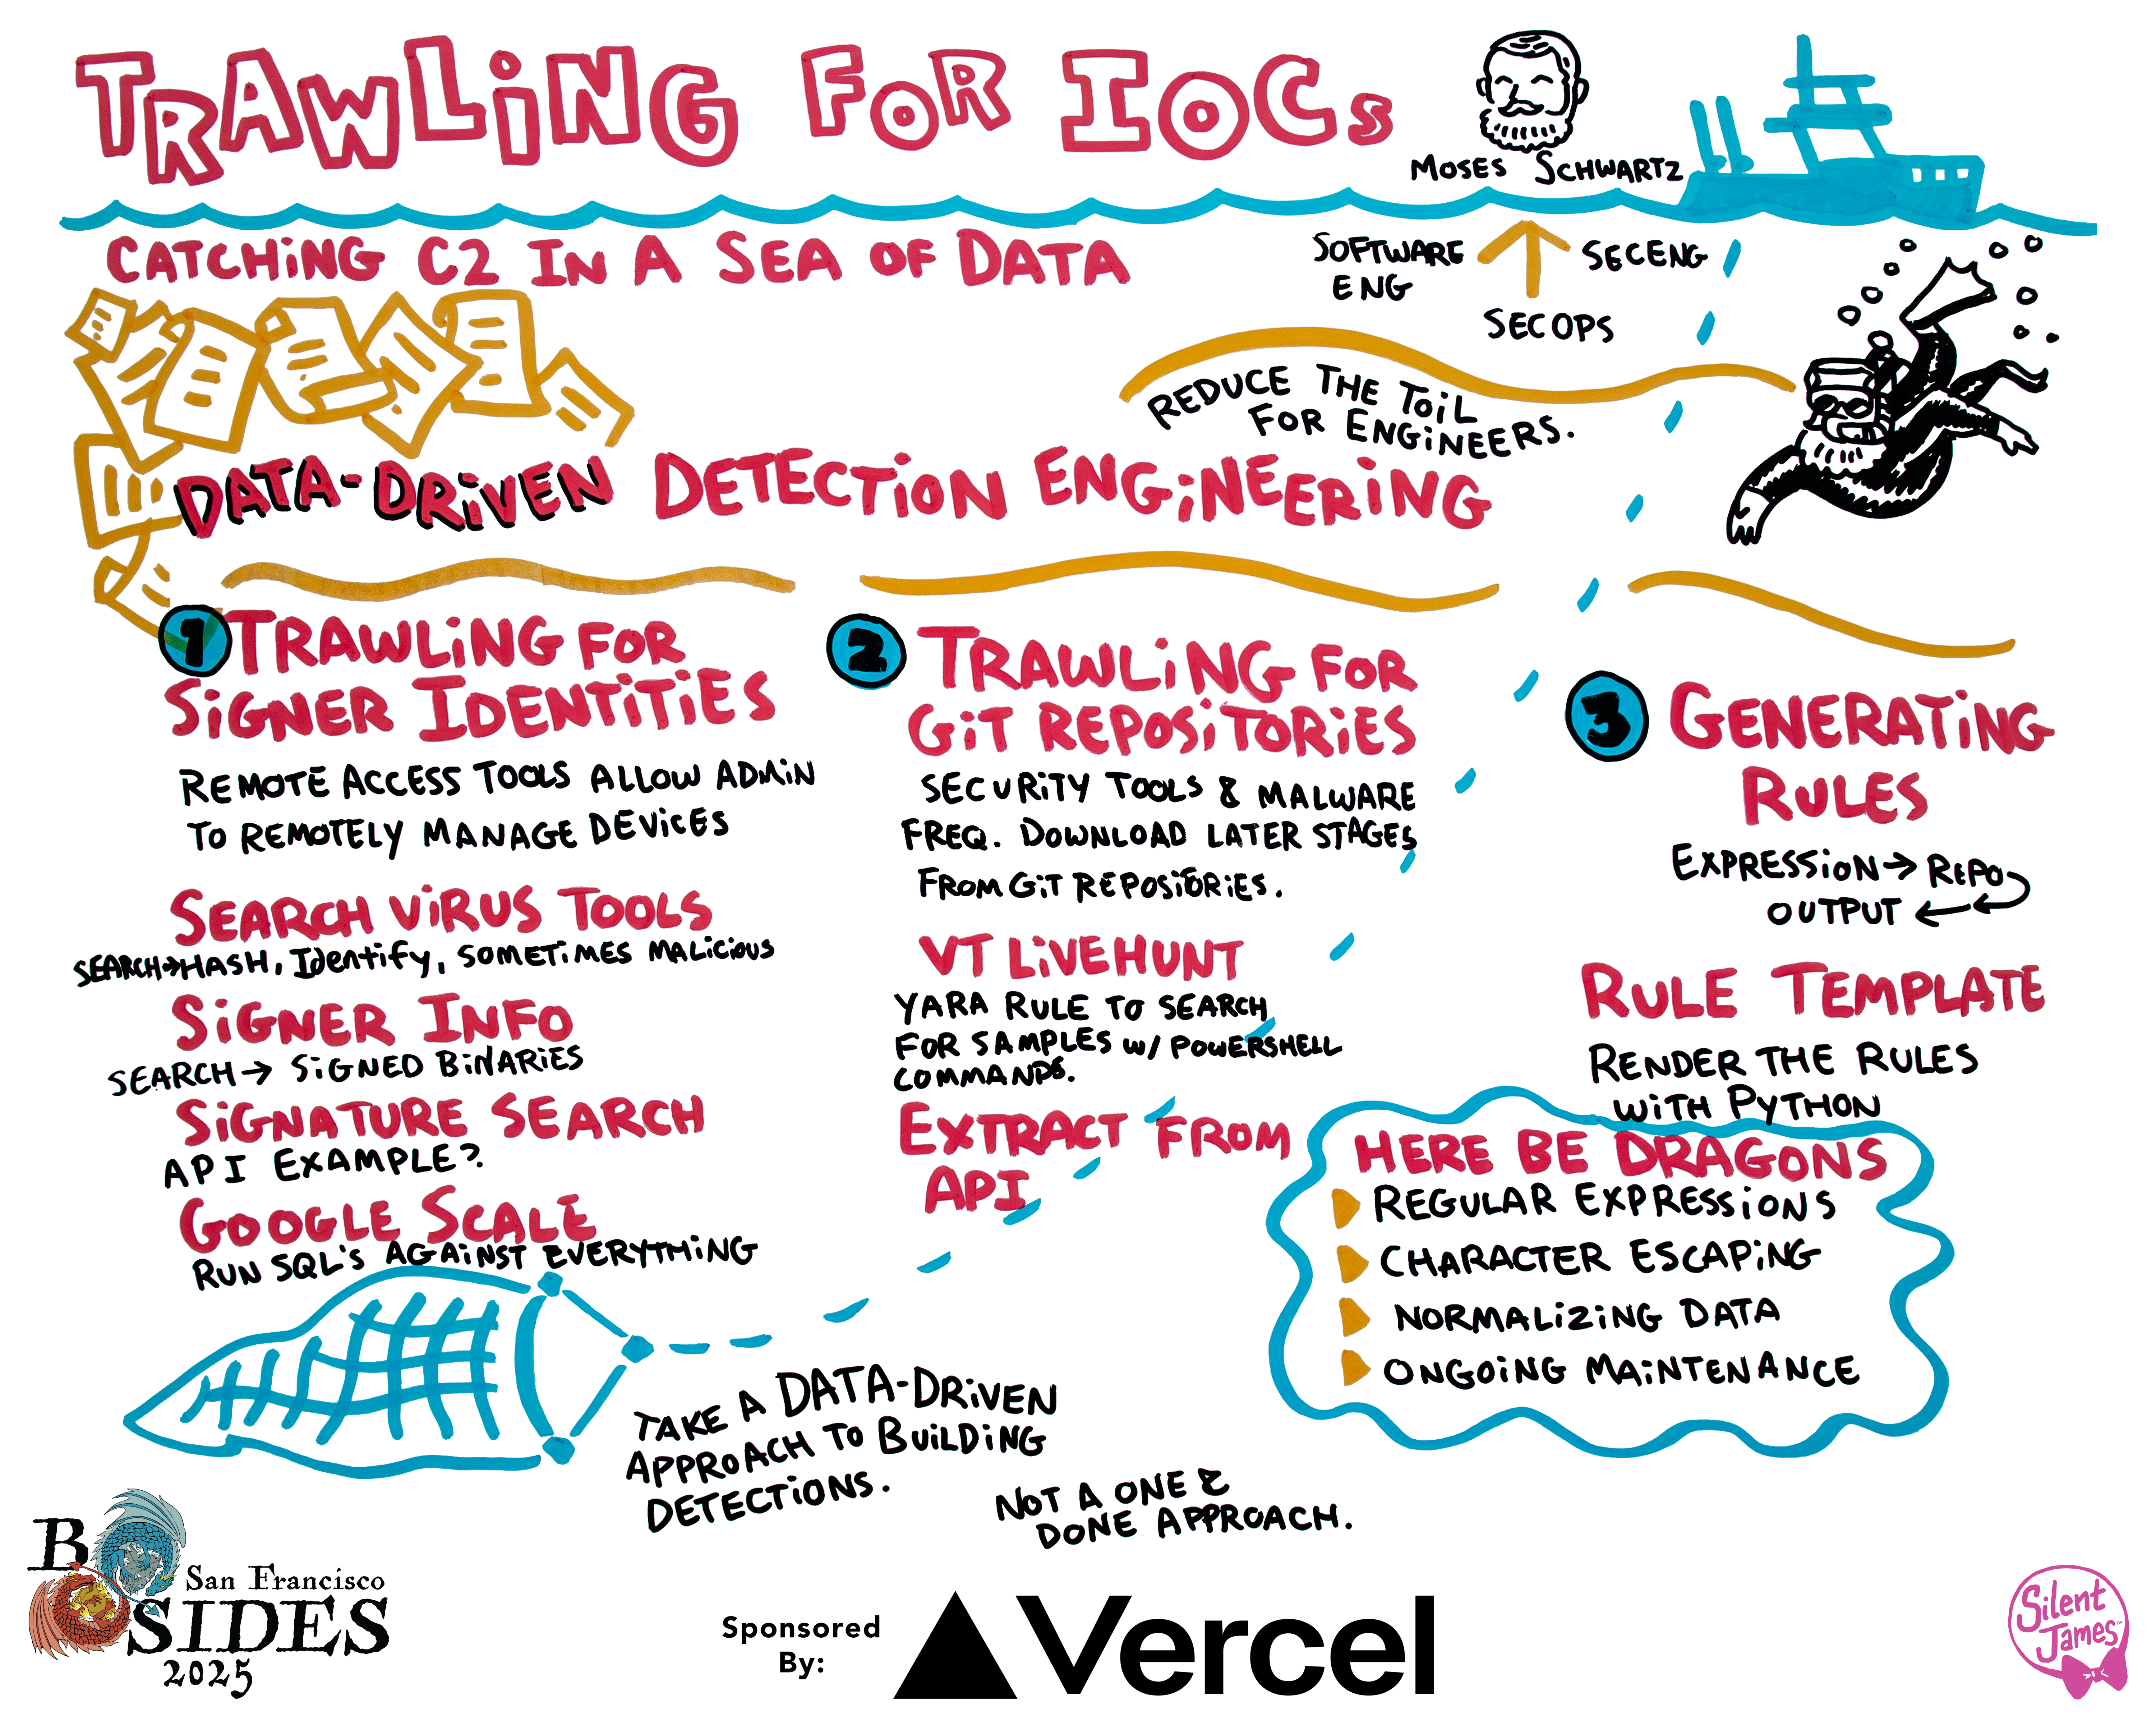 TRAWLING FOR IOCs
MOSES SCHWARTZ
CATCHING C2 IN A SEA OF DATA
SOFTWARE ENG
SECENG
SECOPS
REDUCE THE TOIL
FOR ENGINEERS.
DATA-DRIVEN DETECTION ENGINEERING
1 TRAWLING FOR
SIGNER IDENTITIES
REMOTE ACCESS TOOLS ALLOW ADMIN
TO REMOTELY MANAGE DEVICES
SEARCH VIRUS TOOLS
SEARCH→HASH, Identify, SOMETIMES MALICIOUS
SIGNER INFO
SEARCH→ SIGNED BINARIES
SIGNATURE SEARCH
API EXAMPLE?
GOOGLE SCALE
RUN SQL'S AGAINST EVERYTHING
2 TRAWLING FOR
GIT REPOSITORIES
SECURITY TOOLS & MALWARE
FREQ. DOWNLOAD LATER STAGES
FROM GIT REPOSITORIES.
VT LIVEHUNT
YARA RULE TO SEARCH
FOR SAMPLES W/ POWERSHELL
COMMANDS.
EXTRACT FROM
API
3 GENERATING
RULES
EXPRESSION→ REPO
OUTPUT ←
RULE TEMPLATE
RENDER THE RULES
WITH PYTHON
HERE BE DRAGONS
REGULAR EXPRESSIONS
CHARACTER ESCAPING
NORMALIZING DATA
ONGOING MAINTENANCE
TAKE A DATA-DRIVEN
APPROACH TO BUILDING
DETECTIONS.
NOT A ONE &
DONE APPROACH.
B SIDES
San Francisco
2025
Sponsored
By:
Vercel
Silent
James™